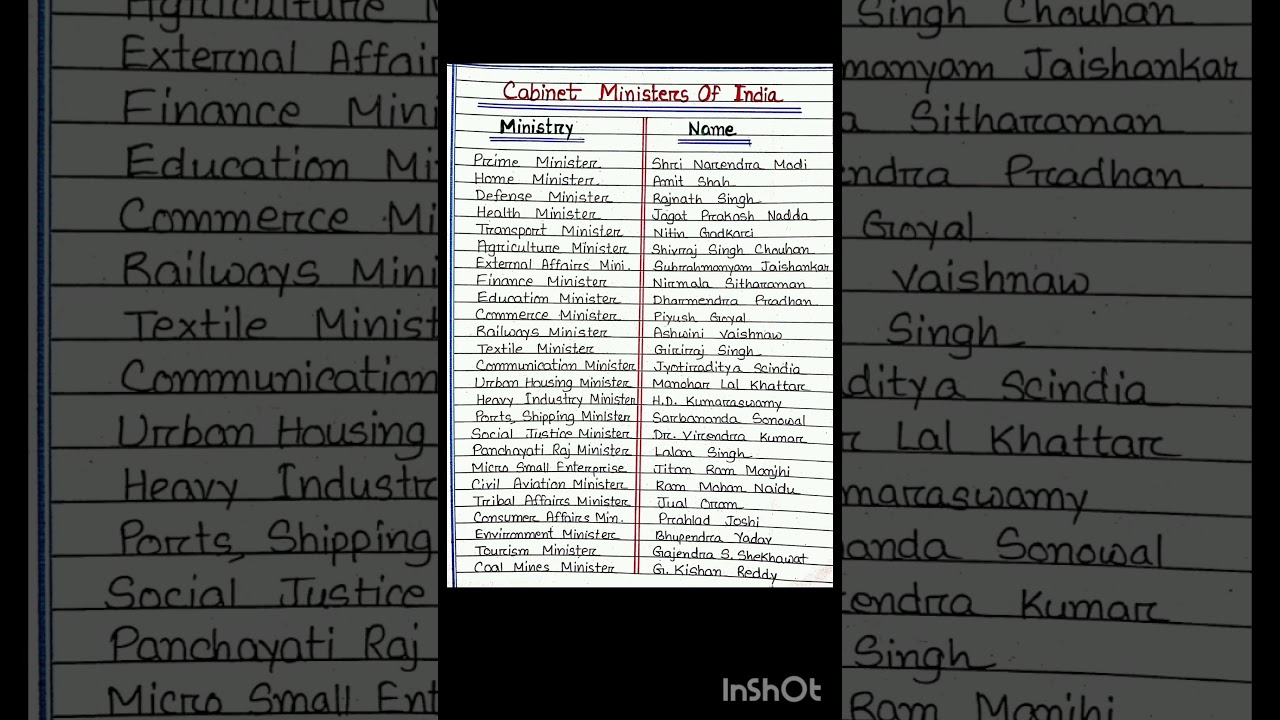 Cabinet Ministers Of India
Ministry Name
Prime Minister Shri Narendra Modi
Home Minister Amit Shah
Defense Minister Rajnath Singh
Health Minister Jagat Prakash Nadda
Transport Minister Nitin Gadkari
Agriculture Minister Shivraj Singh Chouhan
External Affairs Mini. Subrahmanyam Jaishankar
Finance Minister Nirmala Sitharaman
Education Minister Dharmendra Pradhan
Commerce Minister Piyush Goyal
Railways Minister Ashwini Vaishnaw
Textile Minister Giriraj Singh
Communication Minister Jyotiraditya Scindia
Urban Housing Minister Manohar Lal Khattar
Heavy Industry Minister H.D. Kumaraswamy
Ports, Shipping Minister Sarbananda Sonowal
Social Justice Minister Dr. Virendra Kumar
Panchayati Raj Minister Lalan Singh
Micro Small Enterprise Jitan Ram Manjhi
Civil Aviation Minister Ram Mohan Naidu
Tribal Affairs Minister Jual Oram
Consumer Affairs Min. Prahlad Joshi
Environment Minister Bhupendra Yadav
Tourism Minister Gajendra S. Shekhawat
Coal Mines Minister G. Kishan Reddy
Agriculture
External Affair
Finance Mini
Education Mi
Commerce Mi
Railways Mini
Textile Minist
Communication
Urban Housing
Heavy Industr
Ports, Shipping
Social Justice
Panchayati Raj
Micro Small Ent
Singh Chouhan
manyam Jaishankar
a Sitharaman
endra Pradhan
Goyal
Vaishnaw
Singh
ditya Scindia
r Lal Khattar
maraswamy
anda Sonowal
endra Kumar
Singh
Ram Manjhi
InShOt